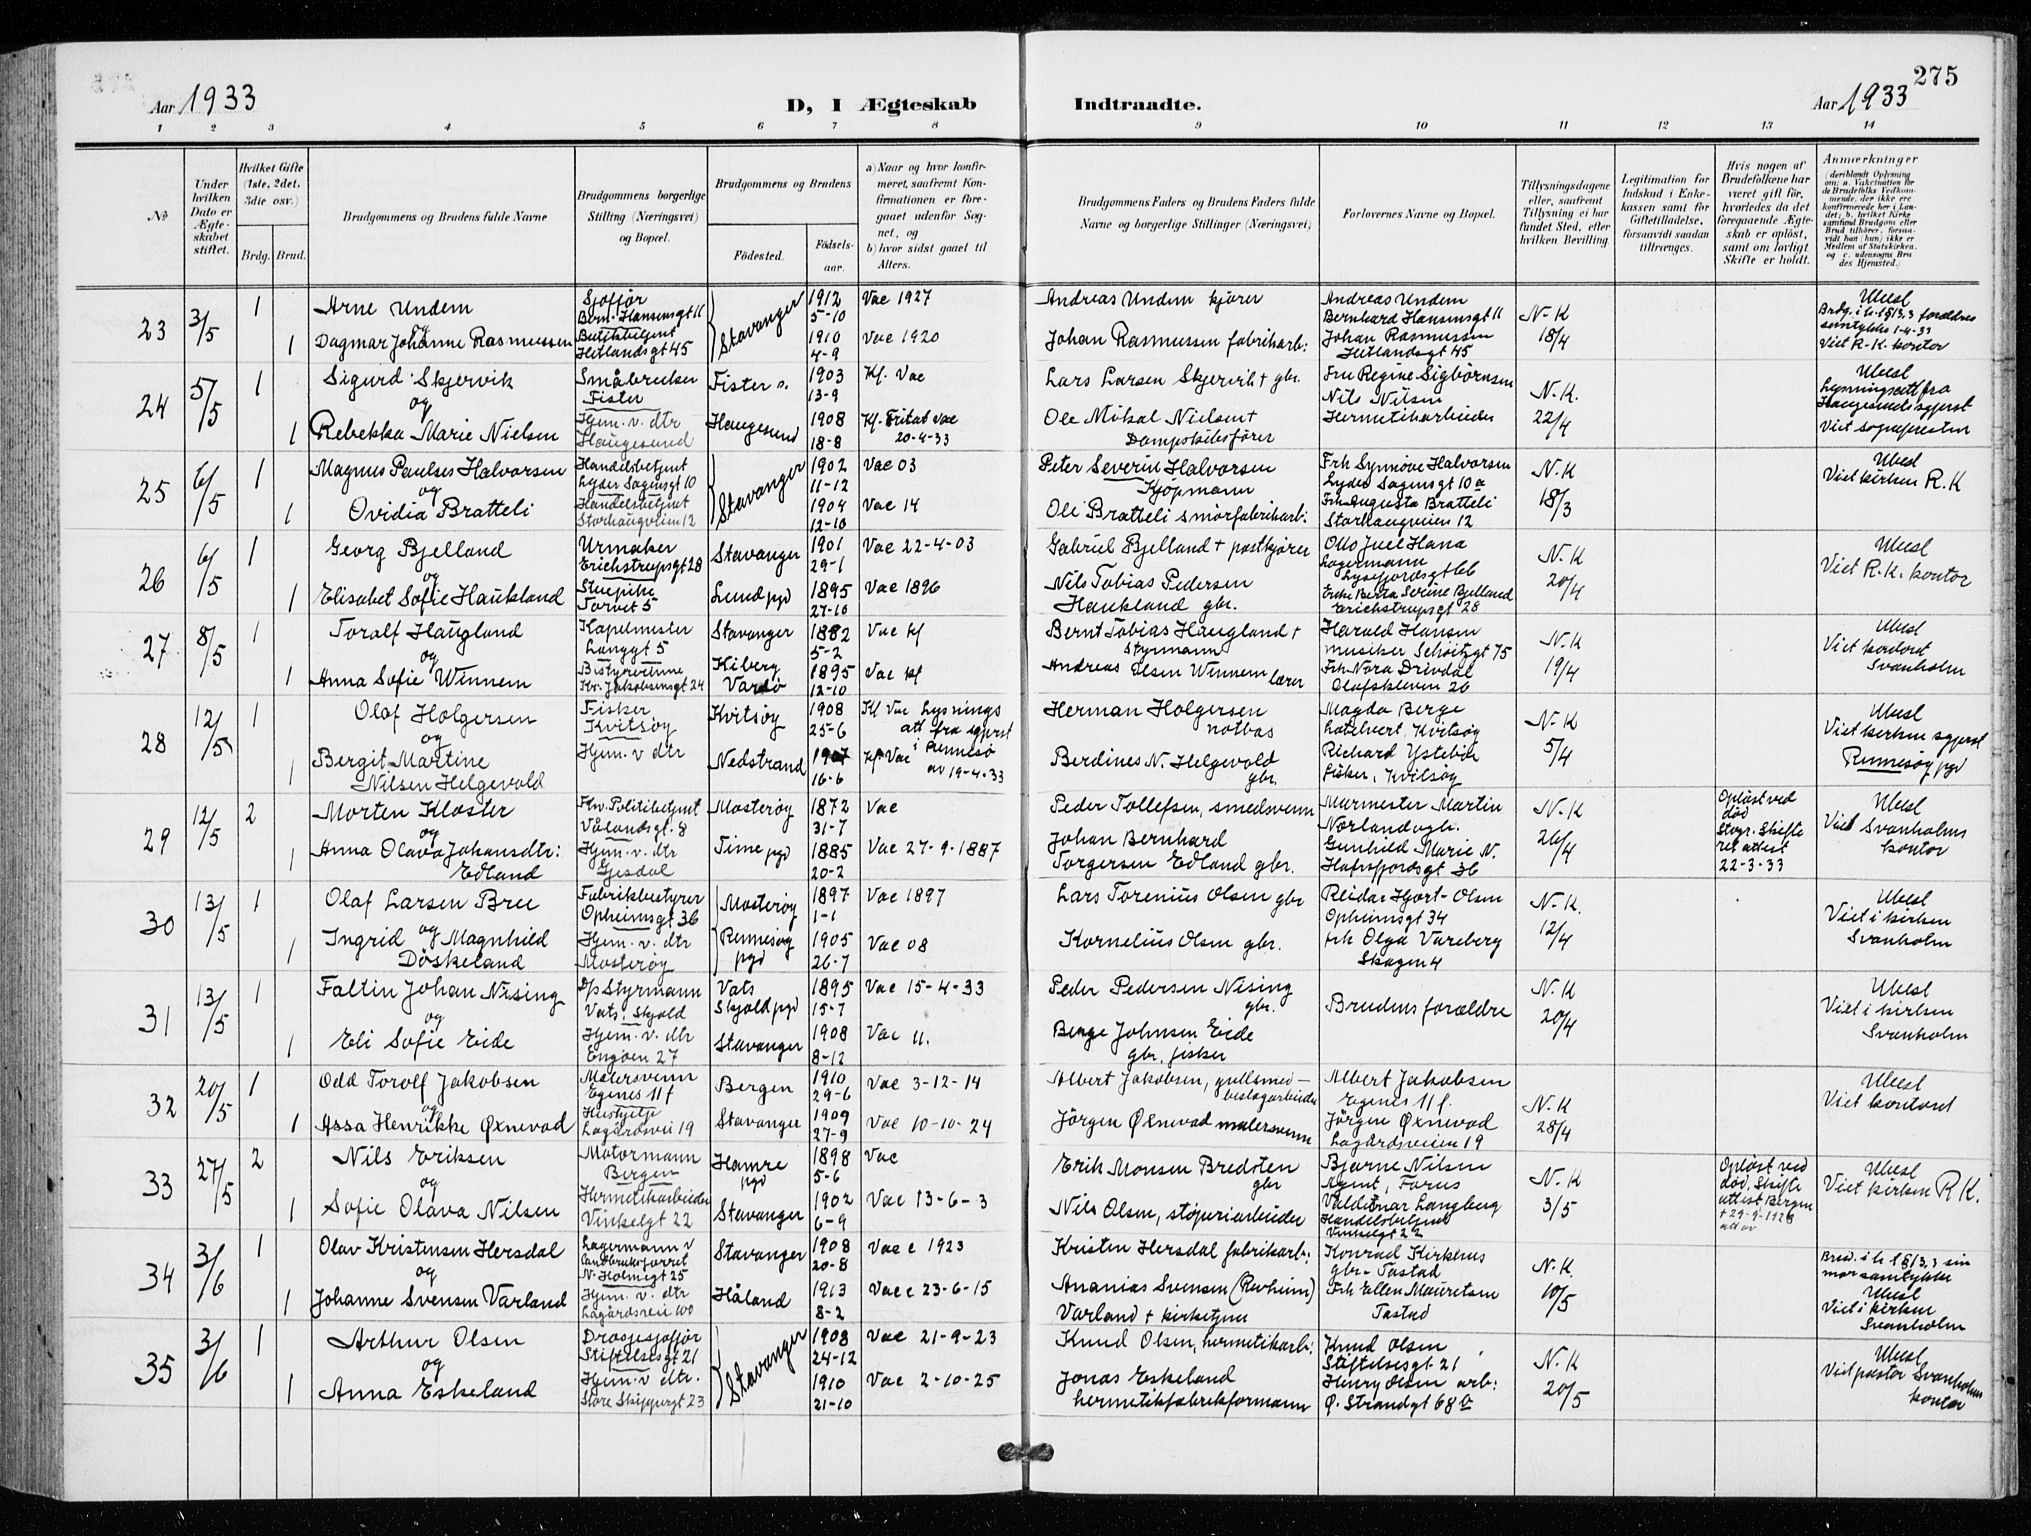 275
Aar 1933
D, I Ægteskab
Indtraadte.
Aar 1933
1 2 3 4 5 6 7 8
9 10 11 12 13 14
No
Under hvilken Dato er Ægteskabet stiftet.
Hvilket Gifte (1ste, 2det, 3die osv.)
Brdg. Brud.
Brudgommens og Brudens fulde Navne
Brudgommens borgerlige Stilling (Næringsvei) og Bopæl.
Brudgommens og Brudens
Fødested.
Fødselsaar.
a) Naar og hvor konfirmeret, saafremt Konfirmationen er foregaaet udenfor Sognet, og
b) hvor sidst gaaet til Alters.
Brudgommens Faders og Brudens Faders fulde Navne og borgerlige Stillinger (Næringsvei)
Forlovernes Navne og Bopæl.
Tillysningsdagene eller, saafremt Tillysning ei har fundet Sted, efter hvilken Bevilling.
Legitimation for Indskud i Enkekassen samt for Giftetilladelse, forsaavidt saadan tiltrænges.
Hvis nogen af Brudefolkene har været gift før, hvorledes da det foregaaende Ægteskab er opløst, samt om lovligt Skifte er holdt.
Anmerkninger
23 3/5 1 Arne Undem Sjofför Bern. Hansensgt 11 Stavanger 1912 5-10 Vac 1927
og
1 Dagmar Johanne Rasmussen Hetlandsgt 45 1910 4-9 Vac 1920
Andreas Undem kjører Andreas Undem Bernhard Hansensgt 11 N-K 18/4
Johan Rasmussen fabrikarb: Johan Rasmussen Hetlandsgt 45
Viet R-K. kontor
24 5/5 1 Sigurd Skjervik Småbruker Fister Fister s. 1903 13-9 Kf. Vac
og
1 Rebekka Marie Nielsen Hjem. v. dtr Haugesund Haugesund 1908 18-8 Kf. Fritat vac 20-4-33
Lars Larsen Skjervik + gbr. Fru Regine Sigbörnsen N.K. 22/4
Ole Mikal Nielsen + Dampskibsfører Nils Nilsen Hermetikarbeider
Lysningsatt fra Haugesunds sgprst
Viet sognepresten
25 6/5 1 Magnus Paulses Halvorsen Handelsbetjent Lyder Sagensgt 10 Stavanger 1902 11-12 Vac 03
og
1 Ovidia Bratteli Handelsbetjent Storhaugveien 12 1904 12-10 Vac 14
Peter Severin Halvorsen Kjøpmann Frk Synnöve Halvorsen Lyder Sagensgt 10a N.K 18/3
Ole Bratteli smörfabrikarb: Frk Augusta Bratteli Storhaugveien 12
Viet kirken R.K
26 6/5 1 Georg Bjelland Urmaker Erichstrupsgt 28 Stavanger 1901 29-1 Vac 22-4-03
og
1 Elisabet Sofie Haukland Stuepike Torvet 5 Lund pgd 1895 27-10 Vac 1896
Gabriel Bjelland + postkjører Otto Juel Hana Lagermann Lysefjordsgt 66 N.K. 20/4
Nils Tobias Pedersen Haukland gbr. Enke Berta Serine Bjelland Erichstrupsgt 28
Viet R.K. kontor
27 8/5 1 Toralf Haugland Kapelmester Langgt 5 Stavanger 1882 5-2 Vac kf
og
1 Anna Sofie Winnem Bestyrerinne Kr. Jakobsensgt 24 Kiberg Vardø 1895 12-10 Vac kf
Bernt Tobias Haugland + Styrmann Harald Hansen musiker Schöitzgt 75 N.K 19/4
Andreas Olsen Winnem lærer Frk Nora Drivdal Olafskleven 26
Viet kontoret Svanholm
28 12/5 1 Olaf Holgersen Fisker Kvitsøy Kvitsøy 1908 25-6 Kf Vac Lysnings att fra sgprst i Rennesø av 19-4-33
og
1 Bergit Martine Nilsen Helgevold Hjem. v dtr Nedstrand 1907 16-6 Kf. Vac
Herman Holgersen notbas Magda Berge Kvitsøy N-K 5/4
Berdines N. Helgevold gbr. Richard Ystebö fisker, Kvitsøy
Viet kirken sgprst Rennesøy pgd
29 12/5 2 Morten Kloster Fhv. Politibetjent Vålandsgt. 8 Mosterøy 1872 31-7 Vac
og
1 Anna Olava Johansdtr: Edland Hjem. v. dtr Gjesdal Time pgd 1885 20-2 Vac 27-9-1887
Peder Tollefsen, smedsvenn Murmester Martin Norland N-K 26/4
Johan Bernhard Torgersen Edland gbr. Gunhild Marie N. Hafrsfjordsgt 36
Opløst ved død Skifte ret attest 22-3-33
Viet Svanholms kontor
30 13/5 1 Olaf Larsen Bru Fabrikbestyrer Opheimsgt 36 Mosterøy 1897 1-1 Vac 1897
og
1 Ingrid Magnhild Döskeland Hjem. v. dtr Mosterøy Rennesøy pgd 1905 26-7 Vac 08
Lars Torenius Olsen gbr Reidar Hjort-Olsen Opheimsgt 34 N-K. 12/4
Kornelius Olsen gbr. frk Olga Vareberg Skagen 4
Viet i kirken Svanholm
31 13/5 1 Faltin Johan Nising D/s Styrmann Vats, Skjold Vats Skjold pgd 1895 15-7 Vac 15-4-33
og
1 Eli Sofie Eide Hjem. v. dtr Engøen 27 Stavanger 1908 8-12 Vac 11.
Peder Pedersen Nising gbr. Brudens forældre N.K 20/4
Berge Johnsen Eide gbr, fisker
Viet i kirken Svanholm
32 20/5 1 Odd Torolf Jakobsen Malersvenn Egenes 11f Bergen 1910 29-6 Vac 3-12-14
og
1 Assa Henrikke Øxnevad Hushjelp Lagårdsvei 19 Stavanger 1909 27-9 Vac 10-10-24
Albert Jakobsen, gullsmed- Albert Jakobsen Egenes 11f. N.K 28/4
Jörgen Øxnevad malersvenn Jörgen Øxnevad Lagårdsveien 19
Viet kontoret
33 27/5 2 Nils Eriksen Motormann Bergen Hamre pgd 1898 5-6 Vac
og
1 Sofie Olava Nilsen Hermetikarbeider Vinkelgt 22 Stavanger 1902 6-9 Vac 13-6-3
Erik Monsen Bredsten gbr Bjarne Nilsen Agent, Forus N.K 3/5
Nils Olsen, støperiarbeider Valdemar Langberg Handelsbetjent Vinkelgt 22
Opløst ved död, Skifte attest Bergen
Viet kirken R K.
34 3/6 1 Olav Kristensen Hersdal Lagermann v N. Holmegt 25 Stavanger 1908 20-8 Vac c 1923
og
1 Johanne Svensen Varland Hjem. v. dtr Lagårdsvei 100 Håland 1913 8-2 Vac c 23-6-15
Kristen Hersdal fabrikarb: Konrad Kirkhus gbr- Tastad N.K. 10/5
Ananias Svensen (Revheim) Varland + kirketjener Frk Ellen Mauritsen Tastad
Viet i kirken Svanholm
35 3/6 1 Arthur Olsen Drosjesjafför Stiftelsesgt 21 Stavanger 1908 24-12 Vac 21-9-23
og
1 Anna Eskeland Hjem. v dtr. Store Skippergt 23 1910 21-10 Vac 2-10-25
Knud Olsen, hermetikarb: Knud Olsen Stiftelsesgt 21 N.K 20/5
Jonas Eskeland hermetikfabrikformann Henry Olsen arb: Ø. Strandgt 68b
Svanholms kontor